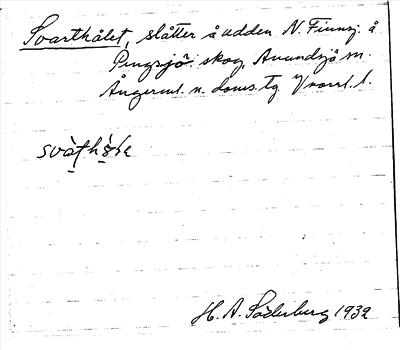 Svarthålet, slåtter å udden N. Finnsj. å
Pengsjö: skog, Anundsjö sn.
Ångerml. n. doms. tg V norrl. l.
H. A. Söderberg 1932